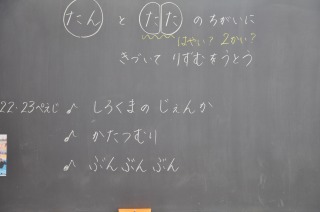 たん と たた のちがいに
はやい? 2かい?
きづいて りずむをうとう
22・23ぺえじ ♪ しろくまの じぇんか
♪ かたつむり
♪ ぶんぶんぶん